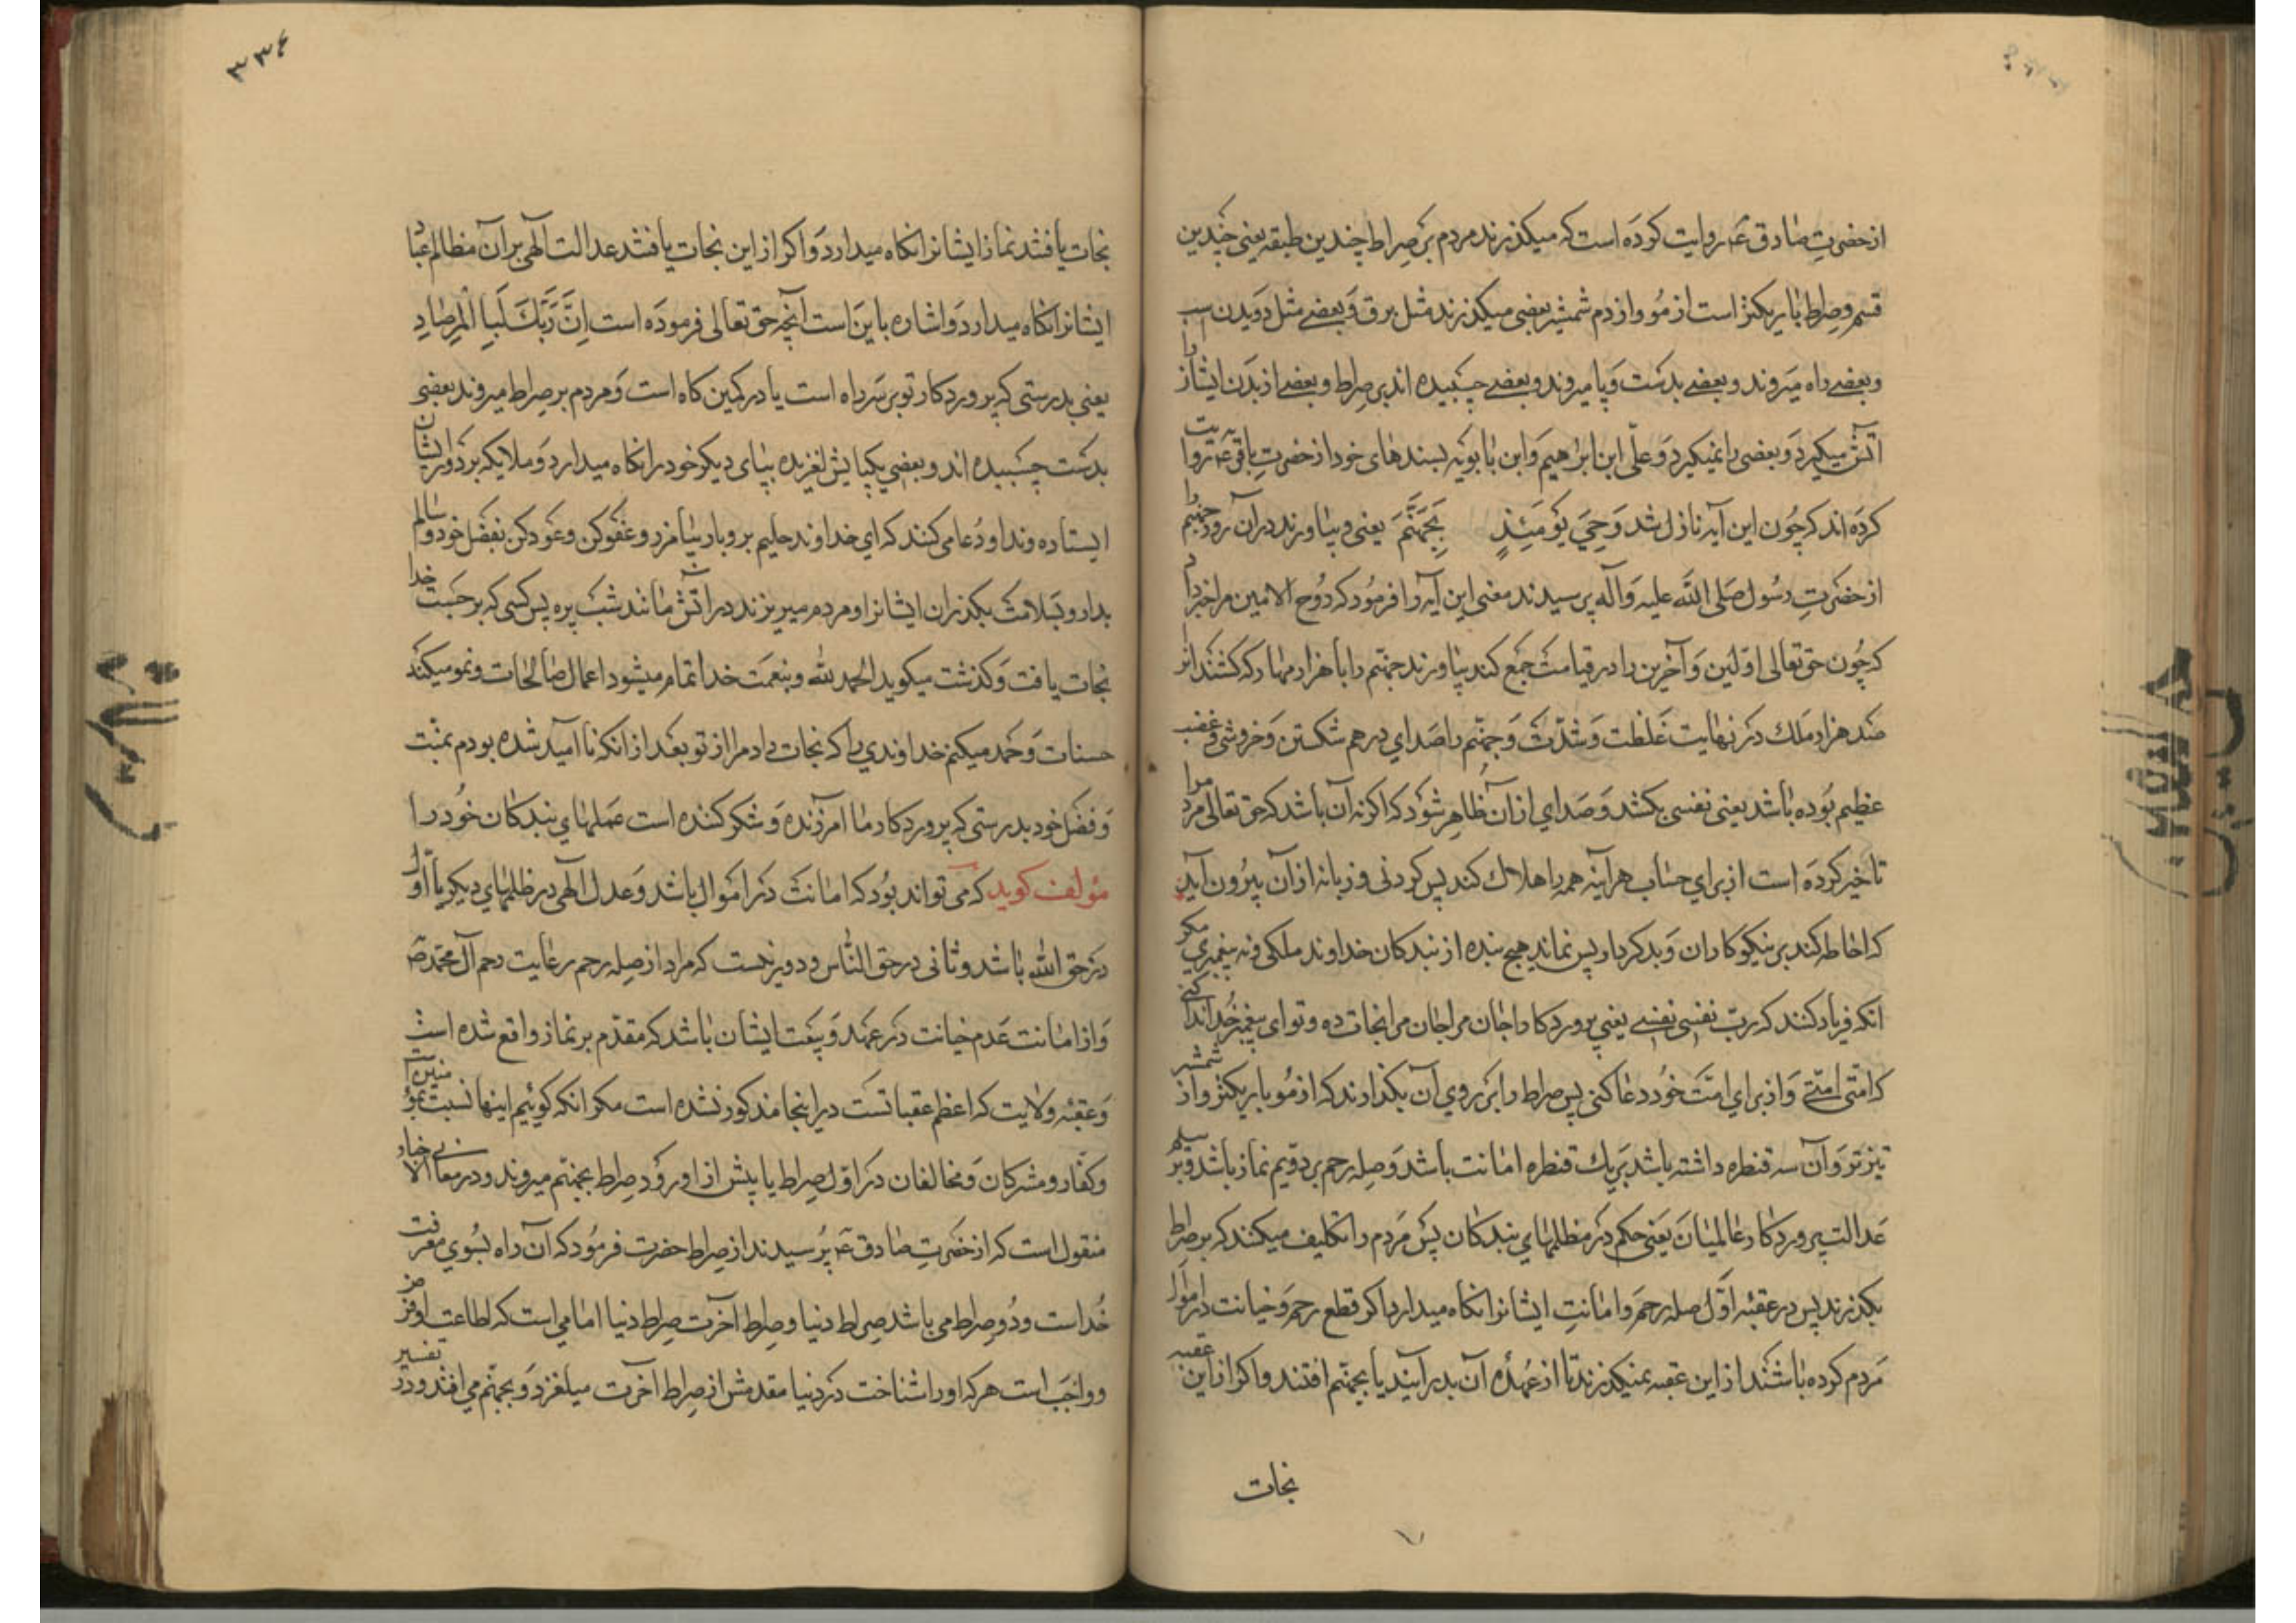 از حضرت صادق ع روایت کرده است که میکذرند مردم بر صراط چندین طبقه یعنی چندین
قسم و صراط باریکتر است از مو و از دم شمشیر بعضی میکذرند مثل برق و بعضے مثل دویدن اسب
و بعضے راه میروند و بعضے بدست و پا میروند و بعضے چسبیده اند بر صراط و بعضے از بدن ایشانرا
آتش میکیرد و بعضی را نمیکیرد و علی ابن ابراهیم و ابن بابویه بسندهای خود از حضرت باقر ع روایت
کرده اند که چون این آیه نازل شد وَجِيَ يَوْمَئِذٍ بِجَهَنَّمَ یعنی و بیاورند در آن روز جهنم را
از حضرت رسول صلی الله علیه و آله پرسیدند معنی این آیه را فرمود که روح الامین مرا خبر داد
که چون حق تعالی اولین و آخرین را در قیامت جمع کند بیاورند جهنم را با هزار مهار که کشند انرا
صد هزار ملك در نهایت غلظت و شدت و جهنم را صدای درهم شکستن و خروشی و غضب
عظیم بوده باشد یعنی نفسی بکشد و صدای از آن ظاهر شود که اکر نه آن باشد که حق تعالی مردم را
تاخیر کرده است از برای حساب هر آینه همه را هلاك کند پس کردنی و زبانه از آن بیرون آید
که احاطه کند بر نیکوکاران و بدکردار پس نماند هیچ بنده از بندکان خداوند ملکی و نه پیغمبری مکر
انکه فریاد کنند که ربّ نفسی نفسے یعنی پروردکارا جان مرا جان مرا نجات ده و تو ای پیغمبر خدا ندا کنے
که امتی امتے و از برای امت خود دعا کنی پس صراط را بر روی آن بکذارند که از مو باریکتر و از شمشیر
تیزتر و آن سه قنطره داشته باشد بر یك قنطره امانت باشد و صله رحم بر دویم نماز باشد و بر سیم
عدالت پروردکار عالمیان یعنی حکم در مظلمهای بندکان پس مردم را تکلیف میکنند که بر صراط
بکذرند پس در عقبه اول صله رحم و امانت ایشانرا نکاه میدارد اکر قطع رحم و خیانت در اموال
مردم کرده باشند از این عقبه نمیکذرند تا از عهده آن بدر آیند یا بجهنم افتند و اکر از این عقبه
نجات
٣٣٤
نجات یافتند نماز ایشانرا نکاه میدارد و اکر از این نجات یافتند عدالت آلهی بر آن مظالم عباد
ایشانرا نکاه میدارد و اشاره باین است آنچه حق تعالی فرموده است اِنَّ رَبَّكَ لَبِا الْمِرْصَادِ
یعنی بدرستی که پروردکار تو بر سر راه است یا در کمین کاه است و مردم بر صراط میروند بعضی
بدست چسبیده اند و بعضی یکپایش لغزیده بپای دیکر خود را نکاه میدارد و ملایکه بر دور ایشان
ایستاده وندا و دعا می کنند که ای خداوند حلیم بردبار بیامرز و عفو کن و عود کن بفضل خود و سالم
بدار و بسلامت بکذران ایشانرا و مردم میریزند در آتش مانند شب پره پس کسی که برحمت خدا
نجات یافت و کذشت میکوید الحمد لله و بنعمت خدا تمام میشود اعمال صالحات و نمو میکند
حسنات و حمد میکنم خداوندی را که نجات داد مرا از تو بعد از انکه نا امید شده بودم بمنت
و فضل خود بدرستی که پروردکار ما آمرزنده و شکر کننده است عملهای بندکان خود را
مؤلف کوید که می تواند بود که امانت در اموال باشد و عدل آلهی در ظلمهای دیکر یا اول
در حق الله باشد و ثانی در حق الناس و دور نیست که مراد از صله رحم رعایت رحم آل محمد ص
و از امانت عدم خیانت در عهد و بیعت ایشان باشد که مقدم بر نماز واقع شده است
و عقبه ولایت که اعظم عقباتست در اینجا مذکور نشده است مکر انکه کوئیم اینها نسبت بمؤمنین
و کفار و مشرکان و مخالفان در اول صراط یا پیش از ورود صراط بجهنم میروند و در معانی الاخبار
منقول است که از حضرت صادق ع پرسیدند از صراط حضرت فرمود که آن راه بسوی معرفت
خداست و دو صراط می باشد صراط دنیا و صراط آخرت صراط دنیا امامی است که اطاعت او فرض
و واجب است هر که او را شناخت در دنیا مقدمش از صراط آخرت میلغزد و بجهنم می افتد و در تفسیر